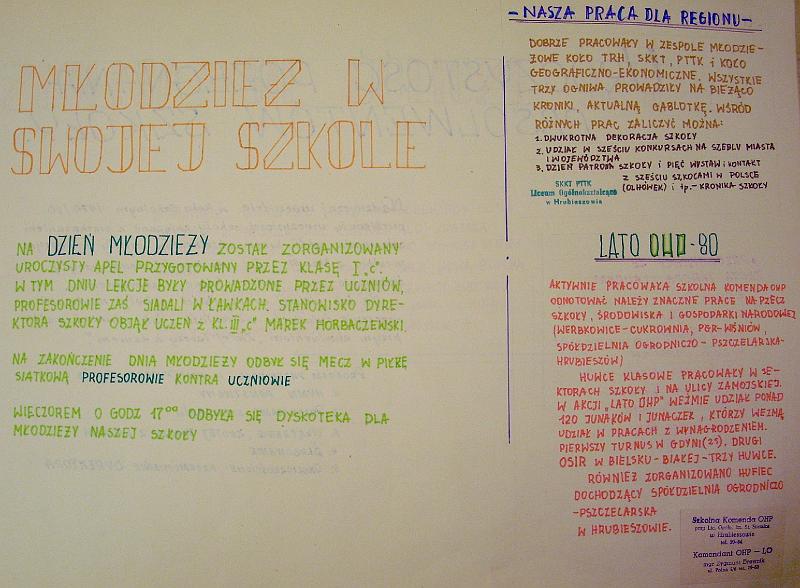 MŁODZIEŻ W
SWOJEJ SZKOLE
NA DZIEŃ MŁODZIEŻY ZOSTAŁ ZORGANIZOWANY
UROCZYSTY APEL PRZYGOTOWANY PRZEZ KLASĘ I „c".
W TYM DNIU LEKCJE BYŁY PROWADZONE PRZEZ UCZNIÓW,
PROFESOROWIE ZAŚ SIADALI W ŁAWKACH. STANOWISKO DYRE-
KTORA SZKOŁY OBJĄŁ UCZEŃ Z KL. III „c" MAREK HORBACZEWSKI.
NA ZAKOŃCZENIE DNIA MŁODZIEŻY ODBYŁ SIĘ MECZ W PIŁKĘ
SIATKOWĄ PROFESOROWIE KONTRA UCZNIOWIE
WIECZOREM O GODZ 17⁰⁰ ODBYŁA SIĘ DYSKOTEKA DLA
MŁODZIEŻY NASZEJ SZKOŁY
- NASZA PRACA DLA REGIONU -
DOBRZE PRACOWAŁY W ZESPOLE MŁODZIE-
ŻOWE KOŁO TRH, SKKT, PTTK I KOŁO
GEOGRAFICZNO-EKONOMICZNE. WSZYSTKIE
TRZY OGNIWA PROWADZIŁY NA BIEŻĄCO
KRONIKI, AKTUALNĄ GABLOTKĘ. WŚRÓD
RÓŻNYCH PRAC ZALICZYĆ MOŻNA:
1. DWUKROTNA DEKORACJA SZKOŁY
2. UDZIAŁ W SZEŚCIU KONKURSACH NA SZEBLU MIASTA
I WOJEWÓDZTWA
3. DZIEŃ PATRONA SZKOŁY I PIĘĆ WYSTAW I KONTAKT
Z SZEŚCIU SZKOŁAMI W POLSCE
(OLHÓWEK) I tp.- KRONIKA SZKOŁY
SKKT PTTK
Liceum Ogólnokształcące
w Hrubieszowie
LATO OHP - 80
AKTYWNIE PRACOWAŁA SZKOLNA KOMENDA OHP
ODNOTOWAĆ NALEŻY ZNACZNE PRACE NA RZECZ
SZKOŁY, ŚRODOWISKA I GOSPODARKI NARODOWEJ
(WERBKOWICE-CUKROWNIA, PGR-WŚNIÓW,
SPÓŁDZIELNIA OGRODNICZO - PSZCZELARSKA-
HRUBIESZÓW)
HUFCE KLASOWE PRACOWAŁY W SE-
KTORACH SZKOŁY I NA ULICY ZAMOJSKIEJ.
W AKCJI „LATO OHP" WEŹMIE UDZIAŁ PONAD
120 JUNAKÓW I JUNACZEK, KTÓRZY WEZMĄ
UDZIAŁ W PRACACH Z WYNAGRODZENIEM.
PIERWSZY TURNUS W GDYNI (25). DRUGI
OSIR W BIELSKU-BIAŁEJ-TRZY HUFCE.
RÓWNIEŻ ZORGANIZOWANO HUFIEC
DOCHODZĄCY SPÓŁDZIELNIA OGRODNICZO
-PSZCZELARSKA
W HRUBIESZOWIE.
Szkolna Komenda OHP
przy Lic. Ogóln. im. St. Staszica
w Hrubieszowie
Komendant OHP - LO
mgr Zygmunt